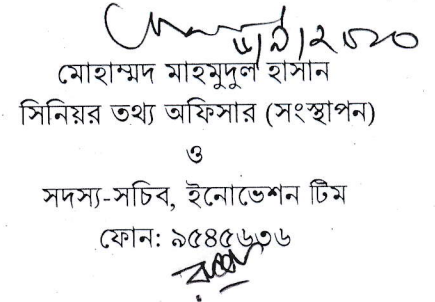 মোহাম্মদ মাহমুদুল হাসান
সিনিয়র তথ্য অফিসার (সংস্থাপন)
ও
সদস্য-সচিব, ইনোভেশন টিম
ফোন: ৯৫৪৫৬৩৬